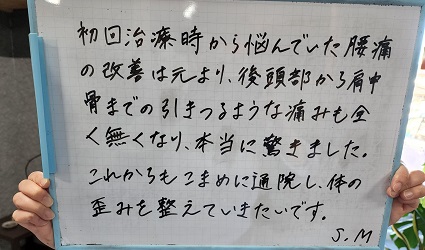 初回治療時から悩んでいた腰痛
の改善は元より、後頭部から肩甲
骨までの引きつるような痛みも全
く無くなり、本当に驚きました。
これからもこまめに通院し、体の
歪みを整えていきたいです。
S.M